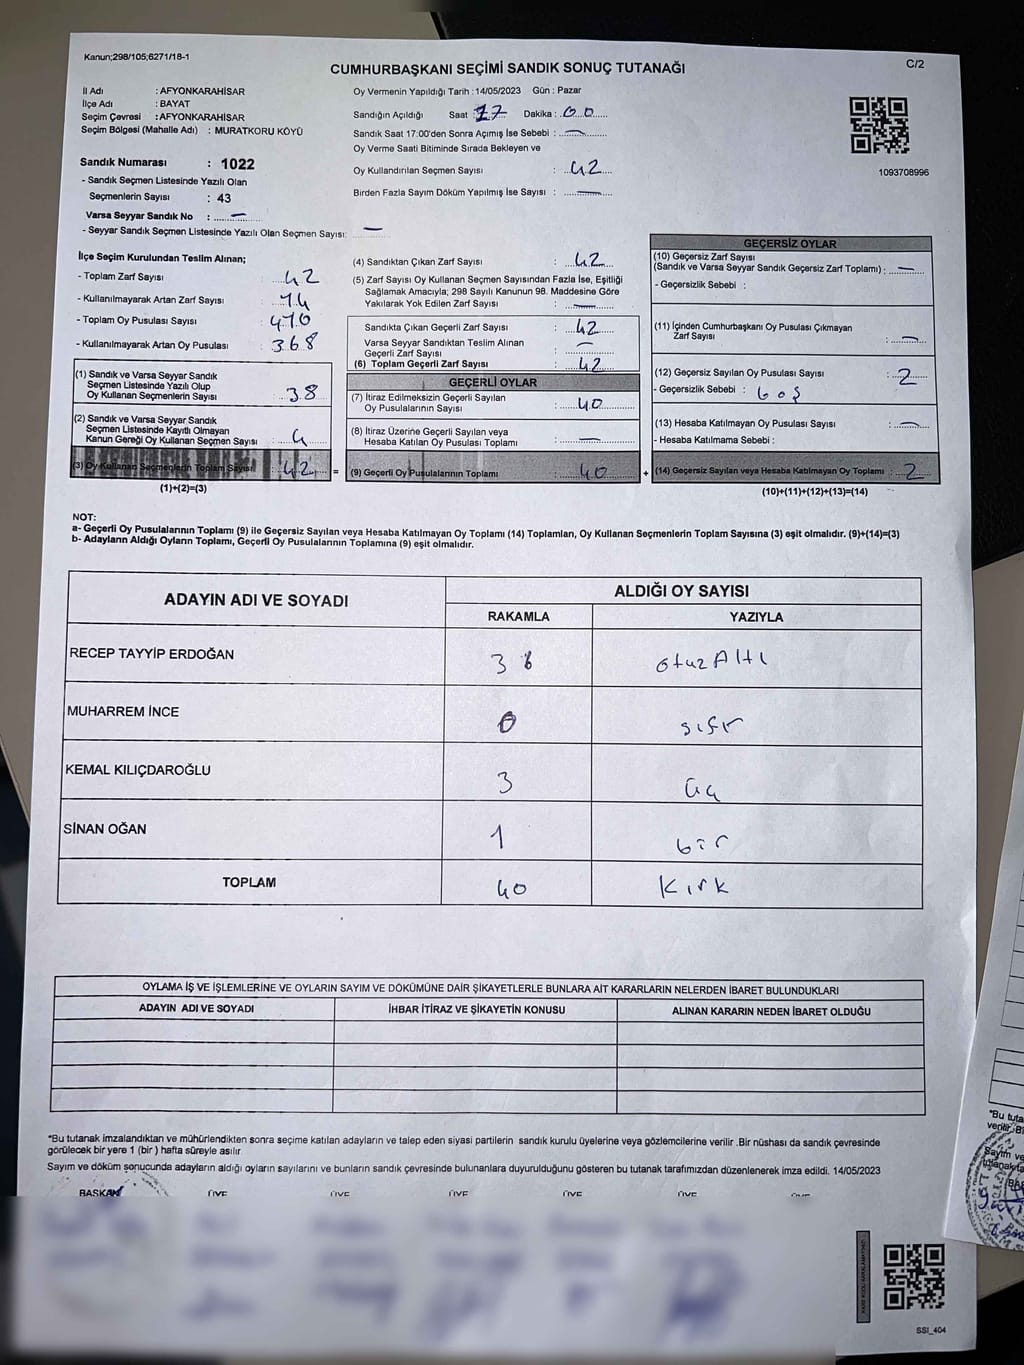 Kanun;298/105;6271/18-1
C/2
CUMHURBAŞKANI SEÇİMİ SANDIK SONUÇ TUTANAĞI
İl Adı : AFYONKARAHİSAR
İlçe Adı : BAYAT
Seçim Çevresi : AFYONKARAHİSAR
Seçim Bölgesi (Mahalle Adı) : MURATKORU KÖYÜ
Sandık Numarası : 1022
- Sandık Seçmen Listesinde Yazılı Olan
Seçmenlerin Sayısı : 43
Varsa Seyyar Sandık No : —
- Seyyar Sandık Seçmen Listesinde Yazılı Olan Seçmen Sayısı: —
Oy Vermenin Yapıldığı Tarih : 14/05/2023 Gün : Pazar
Sandığın Açıldığı Saat : 17 Dakika : 00
Sandık Saat 17:00'den Sonra Açımış İse Sebebi : —
Oy Verme Saati Bitiminde Sırada Bekleyen ve
Oy Kullandırılan Seçmen Sayısı : 42
Birden Fazla Sayım Döküm Yapılmış İse Sayısı : —
1093708996
İlçe Seçim Kurulundan Teslim Alınan;
- Toplam Zarf Sayısı : 42
- Kullanılmayarak Artan Zarf Sayısı :
- Toplam Oy Pusulası Sayısı : 410
- Kullanılmayarak Artan Oy Pusulası : 368
(1) Sandık ve Varsa Seyyar Sandık
Seçmen Listesinde Yazılı Olup
Oy Kullanan Seçmenlerin Sayısı : 38
(2) Sandık ve Varsa Seyyar Sandık
Seçmen Listesinde Kayıtlı Olmayan
Kanun Gereği Oy Kullanan Seçmen Sayısı : 4
(3) Oy Kullanan Seçmenlerin Toplam Sayısı : 42 =
(1)+(2)=(3)
(4) Sandıktan Çıkan Zarf Sayısı : 42
(5) Zarf Sayısı Oy Kullanan Seçmen Sayısından Fazla İse, Eşitliği
Sağlamak Amacıyla; 298 Sayılı Kanunun 98. Maddesine Göre
Yakılarak Yok Edilen Zarf Sayısı : —
Sandıkta Çıkan Geçerli Zarf Sayısı : 42
Varsa Seyyar Sandıktan Teslim Alınan
Geçerli Zarf Sayısı : —
(6) Toplam Geçerli Zarf Sayısı : 42
GEÇERLİ OYLAR
(7) İtiraz Edilmeksizin Geçerli Sayılan
Oy Pusulalarının Sayısı : 40
(8) İtiraz Üzerine Geçerli Sayılan veya
Hesaba Katılan Oy Pusulası Toplamı : —
(9) Geçerli Oy Pusulalarının Toplamı : 40 +
GEÇERSİZ OYLAR
(10) Geçersiz Zarf Sayısı
(Sandık ve Varsa Seyyar Sandık Geçersiz Zarf Toplamı) : —
- Geçersizlik Sebebi :
(11) İçinden Cumhurbaşkanı Oy Pusulası Çıkmayan
Zarf Sayısı : —
(12) Geçersiz Sayılan Oy Pusulası Sayısı : 2
- Geçersizlik Sebebi : boş
(13) Hesaba Katılmayan Oy Pusulası Sayısı : —
- Hesaba Katılmama Sebebi :
(14) Geçersiz Sayılan veya Hesaba Katılmayan Oy Toplamı : 2
(10)+(11)+(12)+(13)=(14)
NOT:
a- Geçerli Oy Pusulalarının Toplamı (9) ile Geçersiz Sayılan veya Hesaba Katılmayan Oy Toplamı (14) Toplamları, Oy Kullanan Seçmenlerin Toplam Sayısına (3) eşit olmalıdır. (9)+(14)=(3)
b- Adayların Aldığı Oyların Toplamı, Geçerli Oy Pusulalarının Toplamına (9) eşit olmalıdır.
ADAYIN ADI VE SOYADI
ALDIĞI OY SAYISI
RAKAMLA YAZIYLA
RECEP TAYYİP ERDOĞAN 36 otuzAltı
MUHARREM İNCE 0 sıfır
KEMAL KILIÇDAROĞLU 3 üç
SİNAN OĞAN 1 bir
TOPLAM 40 kırk
OYLAMA İŞ VE İŞLEMLERİNE VE OYLARIN SAYIM VE DÖKÜMÜNE DAİR ŞİKAYETLERLE BUNLARA AİT KARARLARIN NELERDEN İBARET BULUNDUKLARI
ADAYIN ADI VE SOYADI İHBAR İTİRAZ VE ŞİKAYETİN KONUSU ALINAN KARARIN NEDEN İBARET OLDUĞU
*Bu tutanak imzalandıktan ve mühürlendikten sonra seçime katılan adayların ve talep eden siyasi partilerin sandık kurulu üyelerine veya gözlemcilerine verilir .Bir nüshası da sandık çevresinde
görülecek bir yere 1 (bir ) hafta süreyle asılır
Sayım ve döküm sonucunda adayların aldığı oyların sayılarını ve bunların sandık çevresinde bulunanlara duyurulduğunu gösteren bu tutanak tarafımızdan düzenlenerek imza edildi. 14/05/2023
BAŞKAN ÜYE ÜYE ÜYE ÜYE ÜYE ÜYE
SSI_404
*Bu tuta
verilir .B
Sayım ve
tutanak ta